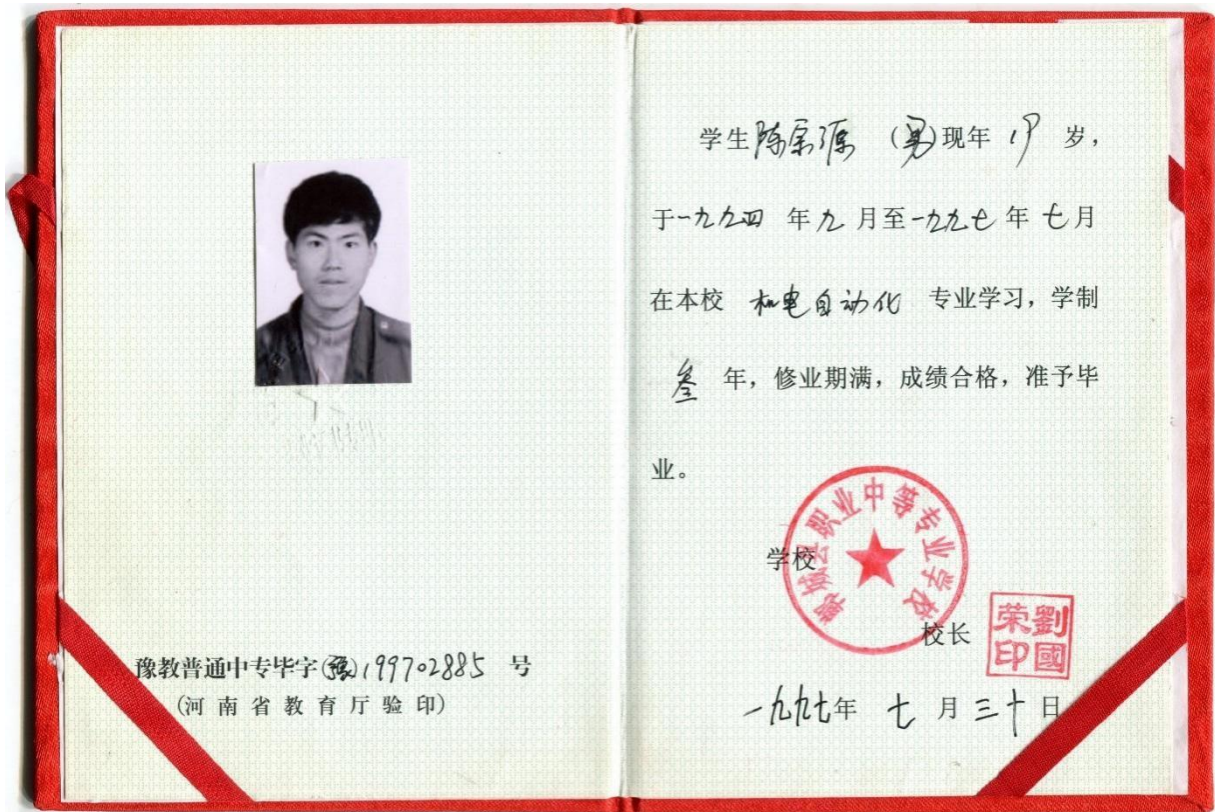 豫教普通中专毕字(豫)199702885 号
(河南省教育厅验印)
学生陈宗源 (男)现年 19 岁，
于一九九四 年 九 月至一九九七年 七月
在本校 机电自动化 专业学习，学制
叁 年，修业期满，成绩合格，准予毕
业。
县职业中等专业学校
学校
校长
劉國荣印
一九九七年 七 月 三十 日